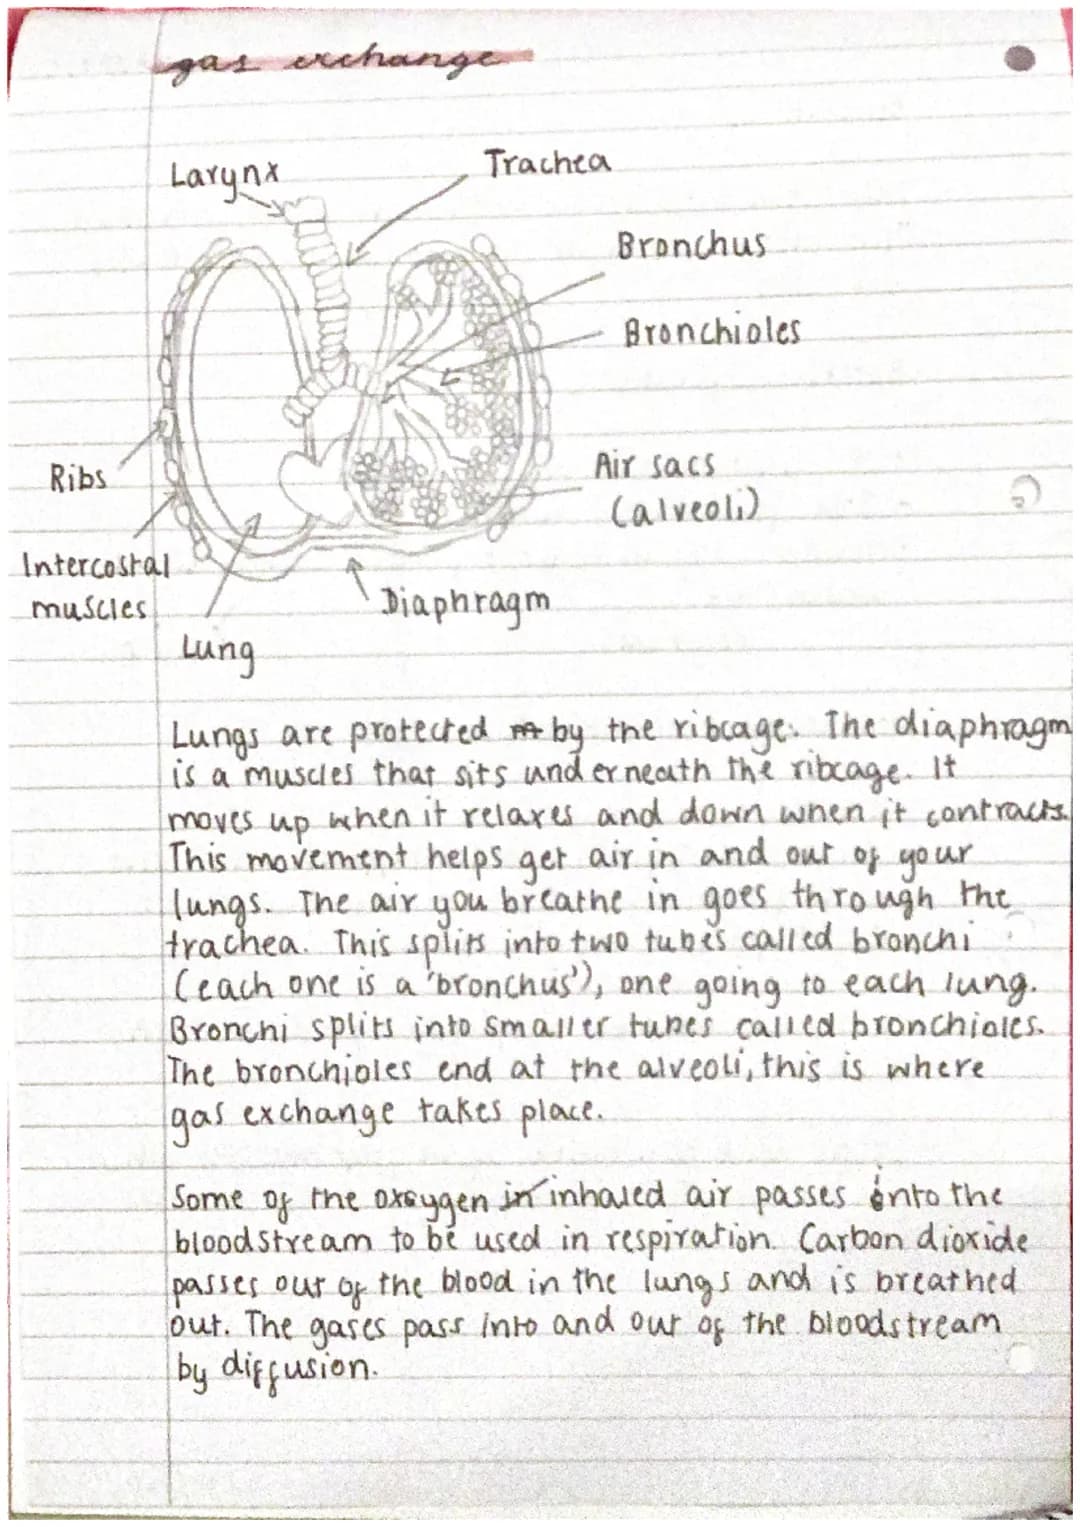 gas exchange
Larynx
Trachea
Bronchus
Bronchioles
Ribs
Air sacs
(alveoli)
Intercostal
muscles
Diaphragm
Lung
Lungs are protected by the ribcage. The diaphragm
is a muscles that sits underneath the ribcage. It
moves up when it relaxes and down when it contracts.
This movement helps get air in and out of your
lungs. The air you breathe in goes through the
trachea. This splits into two tubes called bronchi
(each one is a 'bronchus'), one going to each lung.
Bronchi splits into smaller tubes called bronchioles.
The bronchioles end at the alveoli, this is where
gas exchange takes place.
Some of the oxygen in inhaled air passes into the
bloodstream to be used in respiration. Carbon dioxide
passes out of the blood in the lungs and is breathed
out. The gases pass into and out of the bloodstream
by diffusion.